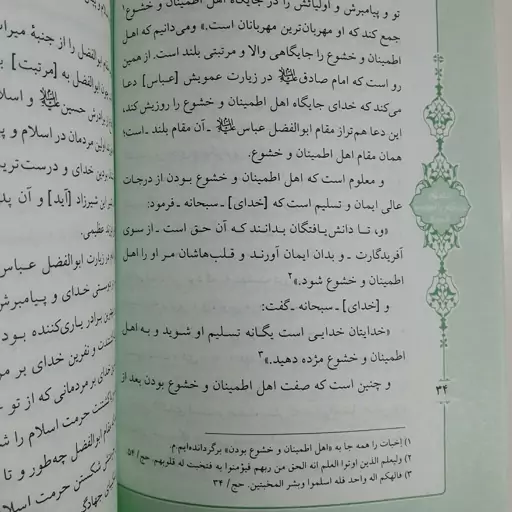 تو و پیامبرش و اولیائش را در جایگاه اهل اطمینان و خشوع!
جمع کند که او مهربان‌ترین مهربانان است.» ومی‌دانیم که اهل
اطمینان و خشوع را جایگاهی والا و مرتبتی بلند است. از همین
رو است که امام صادق در زیارت عمویش [عباس] دعا
می‌کند که خدای جایگاه اهل اطمینان و خشوع را روزیش کند،
این دعا هم‌تراز مقام ابوالفضل عباس ـ آن مقام بلند ـ است؛
همان مقام اهل اطمینان و خشوع.
و معلوم است که اهل اطمینان و خشوع بودن از درجات
عالی ایمان و تسلیم است که [خدای] ـ سبحانه ـ فرمود:
«و، تا دانش‌یافتگان بدانند که آن حق است ـ از سوی
آفریدگارت ـ و بدان ایمان آورند و قلب‌هاشان مر او را اهل
اطمینان و خشوع شود.»۲
و [خدای] ـ سبحانه ـ گفت:
«خدایتان خدایی است یگانه تسلیم او شوید و به اهل
اطمینان و خشوع مژده دهید.»۳
و چنین است که صفت اهل اطمینان و خشوع بودن بعد از
۱) اخبات را همه جا به «اهل اطمینان و خشوع بودن» برگردانده‌ایم.م.
۲) ولیعلم الذین اوتوا العلم انه الحق من ربهم فیؤمنوا به فتخبت له قلوبهم. حج/ ۵۴
۳) فالهکم اله واحد فله اسلموا وبشر المخبتین. حج/ ۳۴
۳۴
ابوالفضل را از جنبهٔ
ابوالفضل به [مرتبت]
حسین و
مردمان در اسلام و
خدای و
شیرزاد [آید] و آن
عظیمی.
در زیارت ابوالفضل عباس
خدای و پیامبرش
برادر یاری‌کننده بود
و نفرین خدای بر
بر مردمانی که از تو
حرمت اسلام را
ابوالفضل چه‌طور و تا
شکستن حرمت